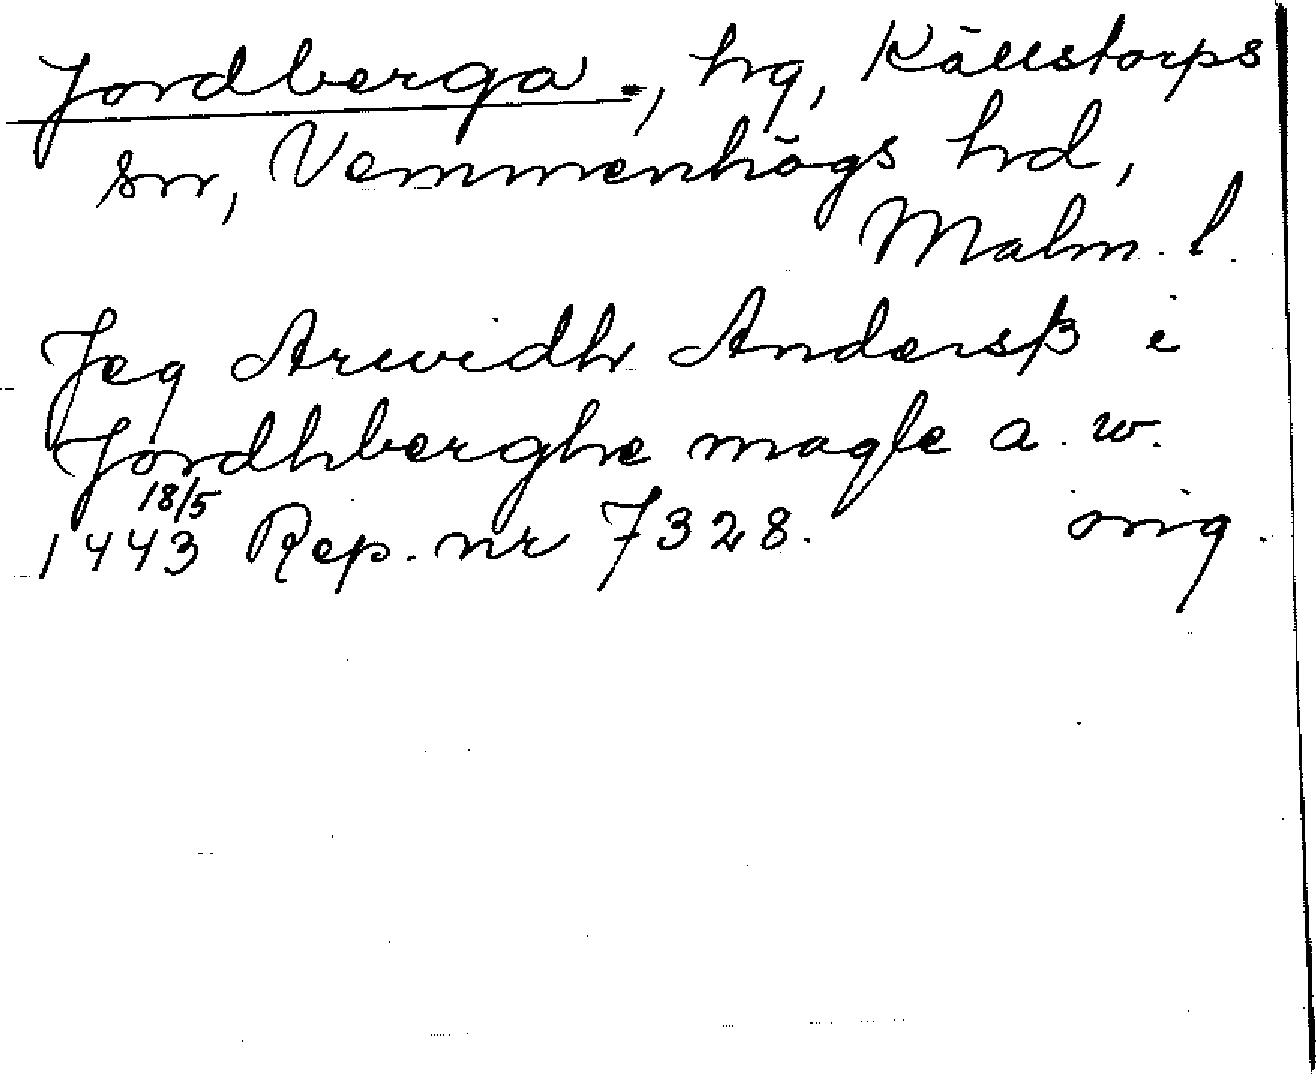 Jordberga, hg, Källstorps
sn, Vemmenhögs hd,
Malm. l.
Jeg Arwidh Andersß i
Jordhberghe magle a. w.
18/5
1443 Rep. nr 7328. orig.